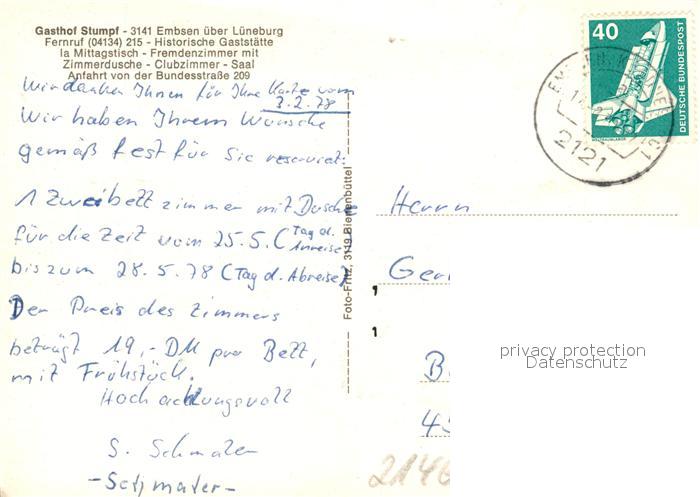 Gasthof Stumpf - 3141 Embsen über Lüneburg
Fernruf (04134) 215 - Historische Gaststätte
la Mittagstisch - Fremdenzimmer mit
Zimmerdusche - Clubzimmer - Saal
Anfahrt von der Bundesstraße 209
Wir danken Ihnen für Ihre Karte vom
3.2.78
Wir haben Ihrem Wunsche
gemäß fest für Sie reserviert:
1 Zweibettzimmer mit Dusche
für die Zeit vom 25.5. (Tag d. Anreise)
bis zum 28.5.78 (Tag d. Abreise)
Der Preis des Zimmers
beträgt 19,- DM pro Bett,
mit Frühstück.
Hochachtungsvoll
S. Schmater
-Schmater-
Foto-Fritz, 3119 Bienenbüttel
40
DEUTSCHE BUNDESPOST
2121
Herrn
Ger
B
45
2146
privacy protection
Datenschutz